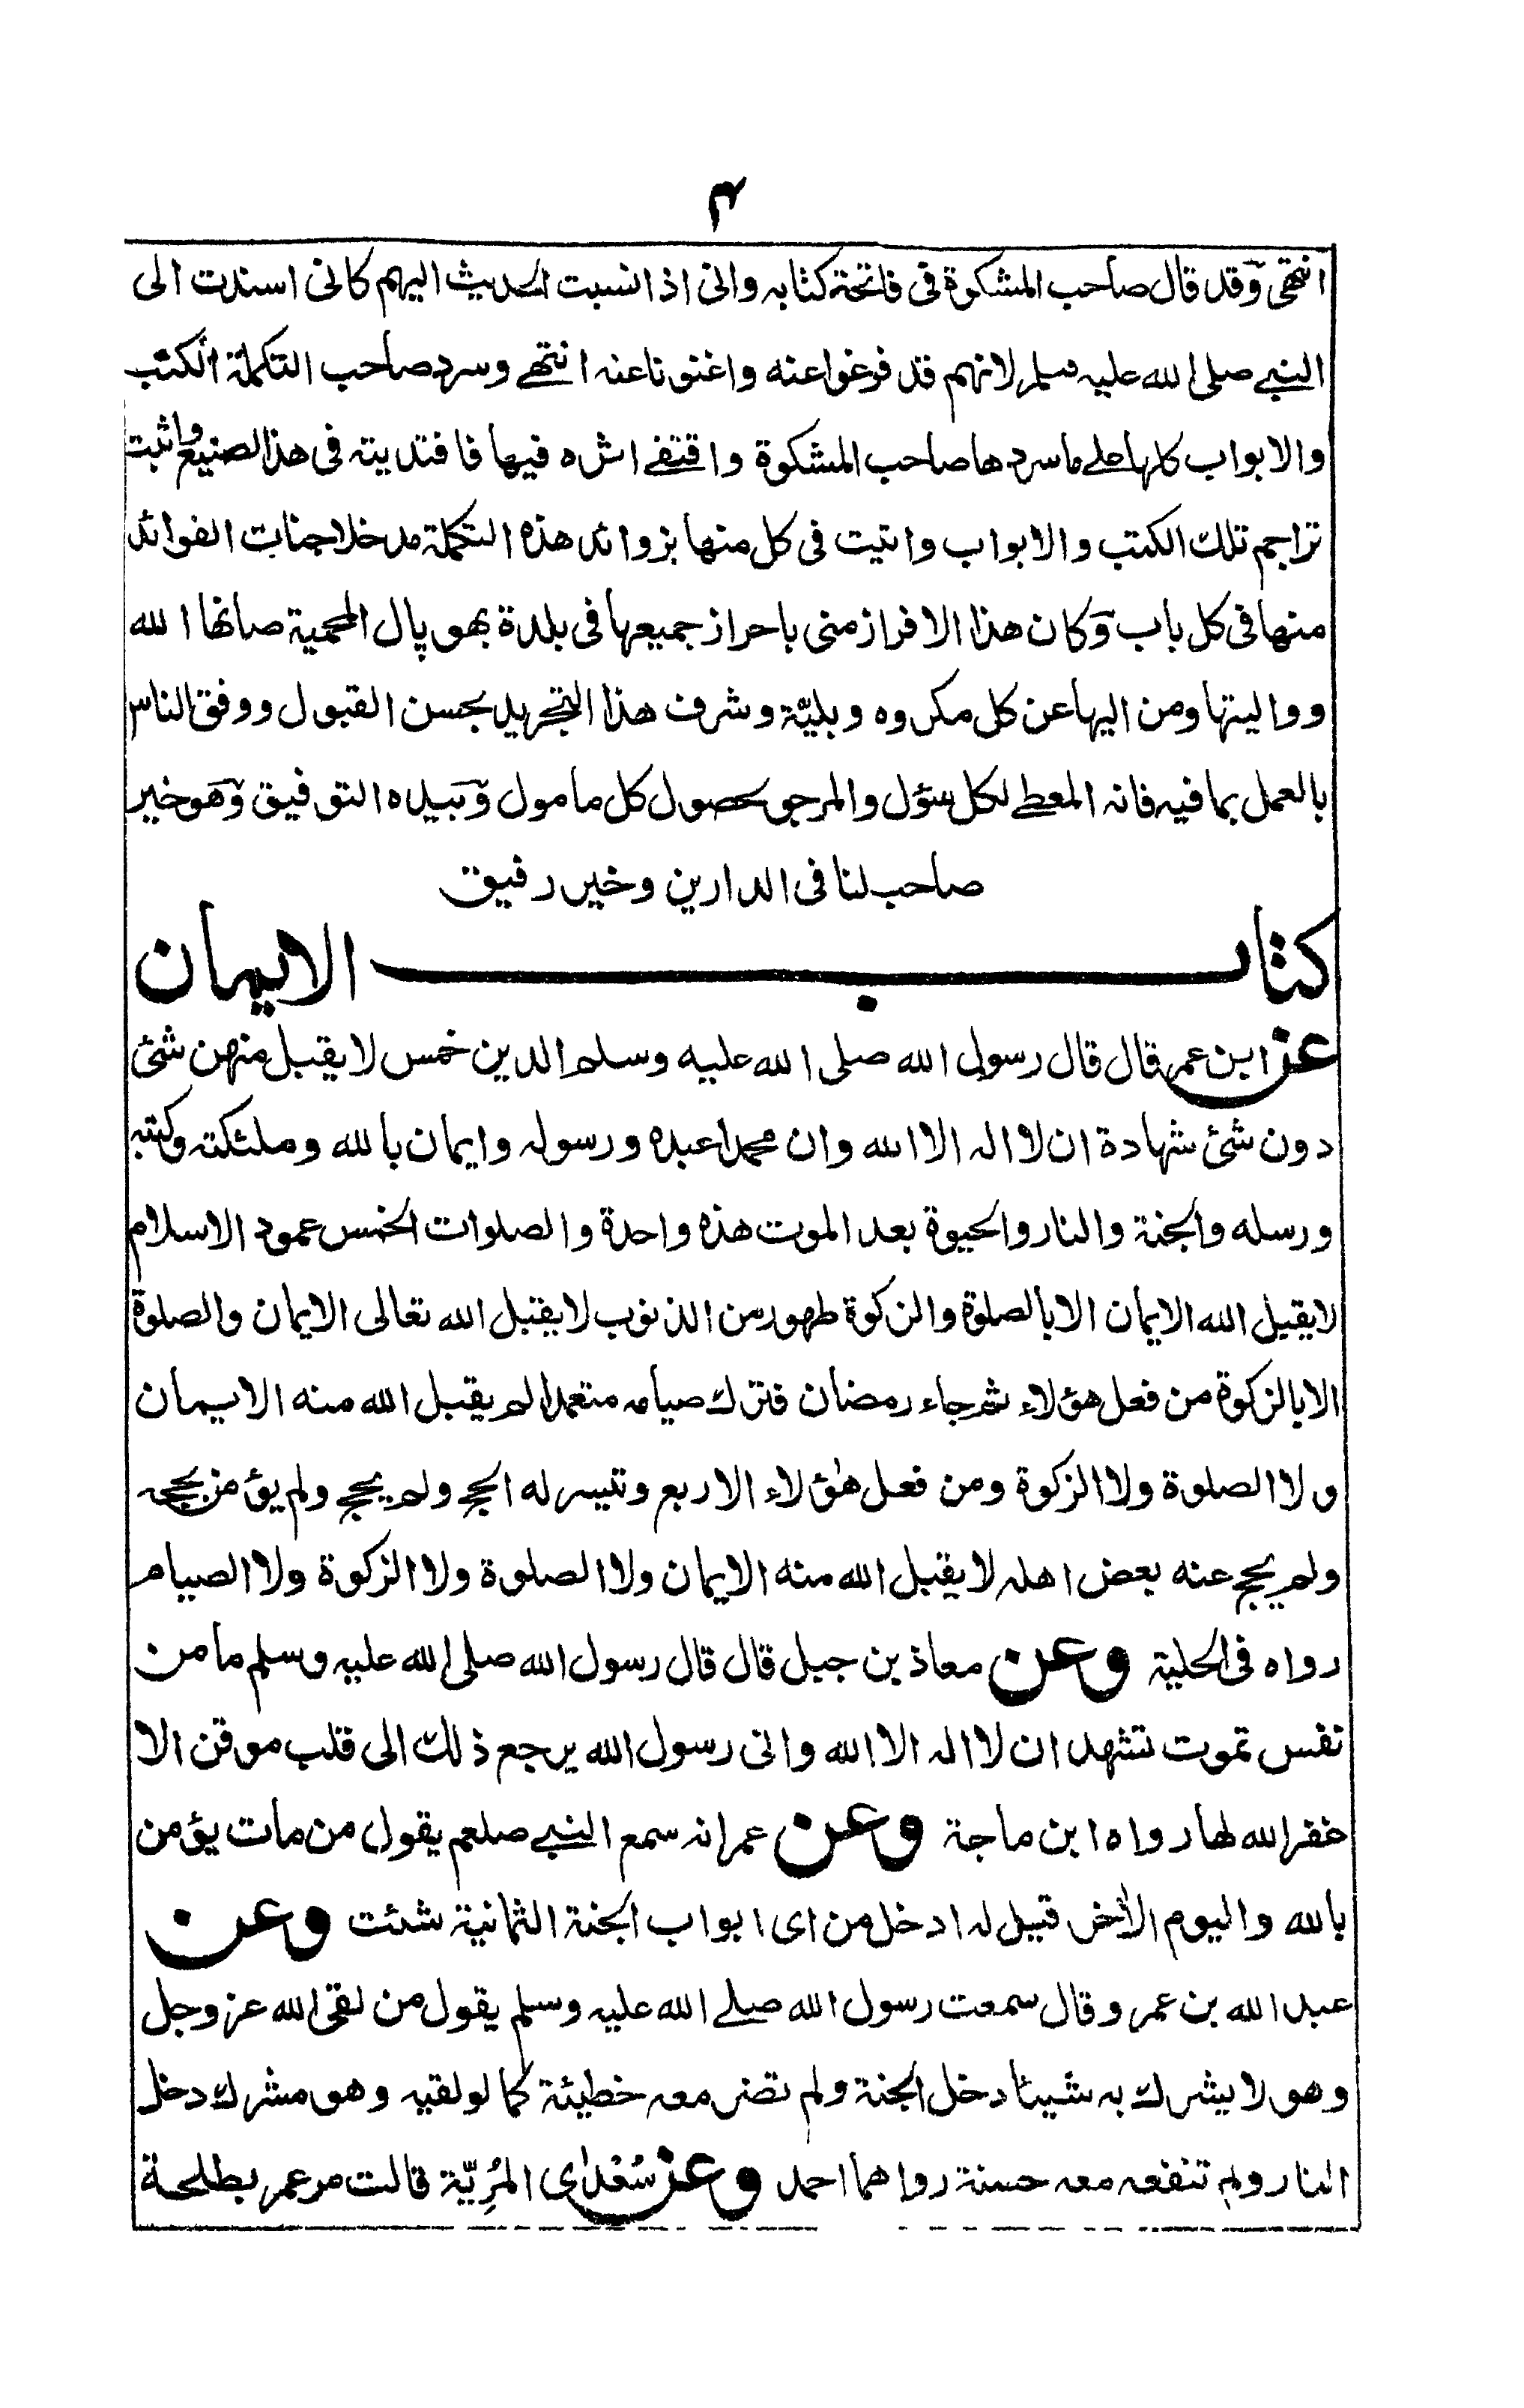 ۴
انتهى وقد قال صاحب المشكوة فى فاتحة كتابه وانى اذا نسبت الحديث اليهم كانى اسندت الى
النبي صلى الله عليه وسلم لانهم قد فرغوا عنه واغنونا عنه انتهے وسرد صاحب التكملة الكتب
والابواب كلها على ما سردها صاحب المشكوة واقتفے اثره فيها فاقتديته فى هذا الصنيع واثبت
تراجم تلك الكتب والابواب واتيت فى كل منها بزوائد هذه التكملة مدخلا جنابت الفوائد
منها فى كل باب وكان هذا الافراز منى باحراز جميعها فى بلدة بهوپال المحمية صانها الله
وواليتها ومن اليها عن كل مكروه وبليّة وشرف هذا التجريد بحسن القبول ووفق الناس
بالعمل بما فيه فانه المعطے لكل سؤل والمرجو لحصول كل مامول وبيده التوفيق وهو خير
صاحب لنا فى الدارين وخير رفيق
كتاب الايمان
عن ابن عمر قال قال رسول الله صلى الله عليه وسلم الدين خمس لا يقبل منهن شئ
دون شئ شهادة ان لا اله الا الله وان محمدا عبده ورسوله وايمان بالله وملئكته وكتبه
ورسله والجنة والنار والحيوة بعد الموت هذه واحدة والصلوات الخمس عمود الاسلام
لا يقبل الله الايمان الا بالصلوة والزكوة طهور من الذنوب لا يقبل الله تعالى الايمان والصلوة
الا بالزكوة من فعل هؤلاء ثم جاء رمضان فترك صيامه متعمدا لم يقبل الله منه الايمان
ولا الصلوة ولا الزكوة ومن فعل هؤلاء الاربع وتيسر له الحج ولم يحج ولم يؤمن بحجه
ولم يحج عنه بعض اهله لا يقبل الله منه الايمان ولا الصلوة ولا الزكوة ولا الصيام
رواه فى الحلية وعن معاذ بن جبل قال قال رسول الله صلى الله عليه وسلم ما من
نفس تموت تشهد ان لا اله الا الله وانى رسول الله يرجع ذلك الى قلب موقن الا
غفر الله لها رواه ابن ماجة وعن عمر انه سمع النبي صلعم يقول من مات يؤمن
بالله واليوم الآخر قيل له ادخل من اى ابواب الجنة الثمانية شئت وعن
عبد الله بن عمرو قال سمعت رسول الله صلے الله عليه وسلم يقول من لقى الله عز وجل
وهو لا يشرك به شيئا دخل الجنة ولم تضر معه خطيئة كما لو لقيه وهو مشرك دخل
النار ولم تنفعه معه حسنة رواهما احمد وعن سُعْدٰى المُرِيّة قالت مر عمر بطلحة